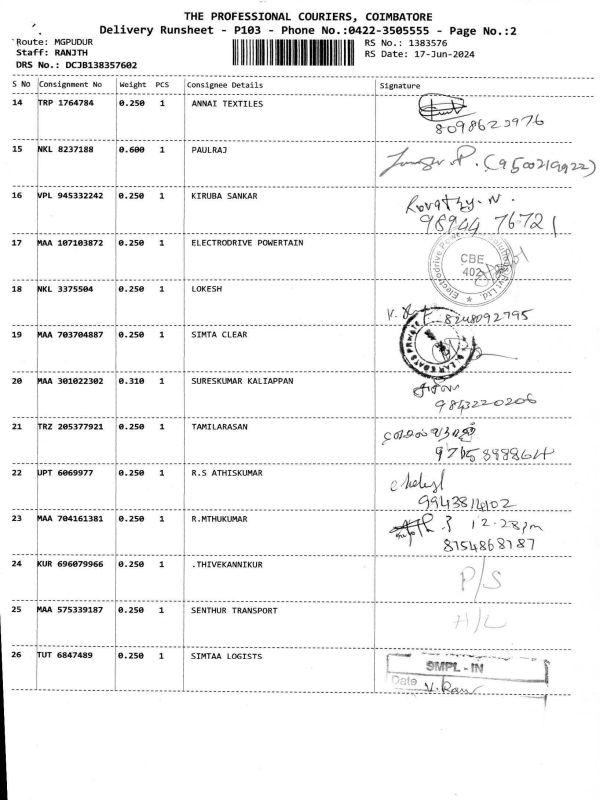 THE PROFESSIONAL COURIERS, COIMBATORE
Delivery Runsheet - P103 - Phone No.:0422-3505555 - Page No.:2
Route: MGPUDUR
RS No.: 1383576
Staff: RANJTH
RS Date: 17-Jun-2024
DRS No.: DCJB138357602
S No Consignment No Weight PCS Consignee Details Signature
14 TRP 1764784 0.250 1 ANNAI TEXTILES
8098623976
15 NKL 8237188 0.600 1 PAULRAJ P. (9500219922)
16 VPL 945332242 0.250 1 KIRUBA SANKAR Revathy. N.
98944 76721
17 MAA 107103872 0.250 1 ELECTRODRIVE POWERTAIN
Electrodrive Solutions Pvt Ltd.
CBE
402
18 NKL 3375504 0.250 1 LOKESH
V. 8248092795
19 MAA 703704887 0.250 1 SIMTA CLEAR
20 MAA 301022302 0.310 1 SURESKUMAR KALIAPPAN
9843220206
21 TRZ 205377921 0.250 1 TAMILARASAN
9715898864
22 UPT 6069977 0.250 1 R.S ATHISKUMAR
9943814102
23 MAA 704161381 0.250 1 R.MTHUKUMAR 12.28pm
8754868787
24 KUR 696079966 0.250 1 .THIVEKANNIKUR P/S
25 MAA 575339187 0.250 1 SENTHUR TRANSPORT H/L
26 TUT 6847489 0.250 1 SIMTAA LOGISTS SMPL - IN
Date V. Ram